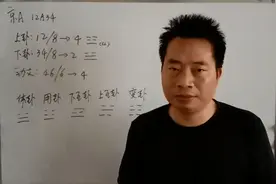 京A 12A34
上卦:12/8→4 ☳
下卦:34/8→2 ☱
动爻:46/6→4
体卦 用卦 下互卦 上互卦 变卦